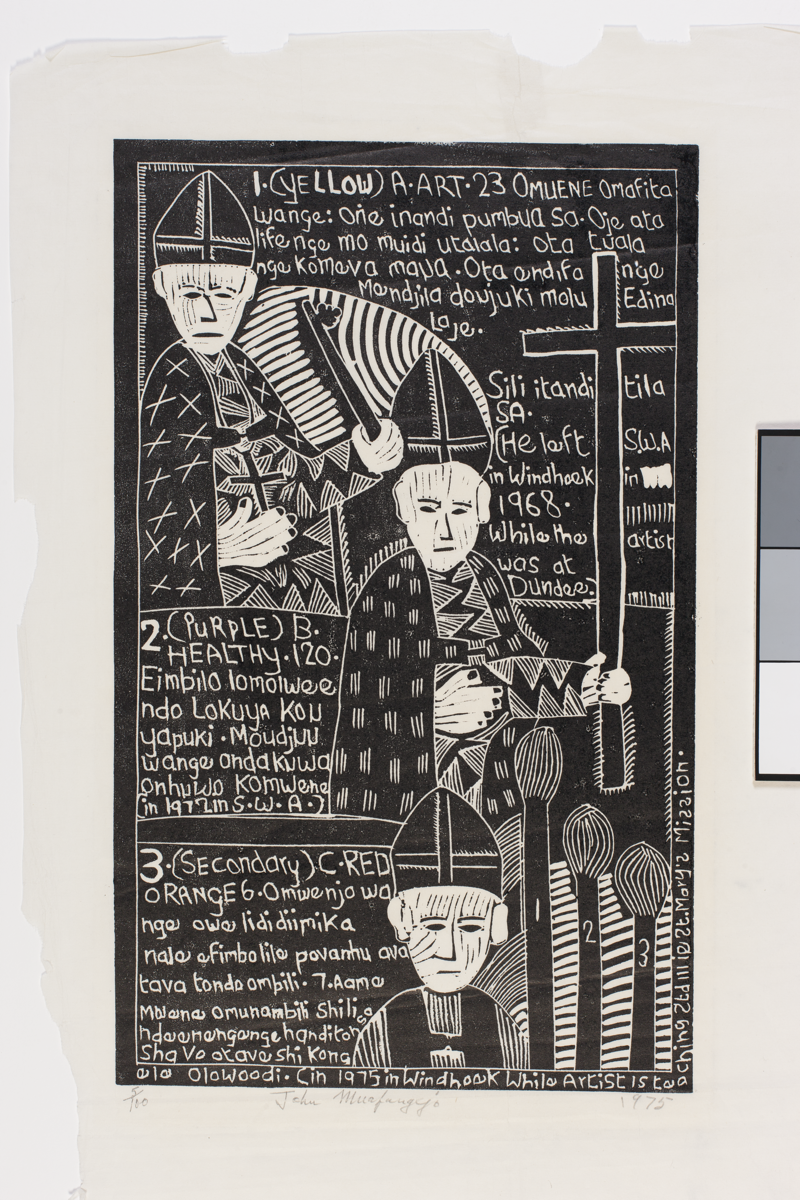 1. (YELLOW) A. ART. 23 OMUENE Omafita
wange: One inandi pumbua Sa. Oje ata
life nge mo muidi utalala: ota tuala
nge komeva maua. Ota endifa nge
Mendjila doujuki molu Edina
laje.
Sili itandi tila
SA.
(He left S.W.A
in Windhoek in
1968.
While the artist
was at
Dundee)
2. (PURPLE) B.
HEALTHY. 120.
Eimbilo lomolwee
ndo LoKuyA KoU
yapuki. Moudjuu
wange onda kuwa
onhuwo Komwene
(in 1972 in S.W.A.)
3. (Secondary) C. RED
ORANGE 6. Omwenjo wa
nge owe lididiimika
nale efimbo lile povanhu ava
tava tonde ombili. 7. Aame
Mwene omunambili Shili
ndee ngenge handiton
Sha Vo otave shi Kong
ele Olowoodi. (in 1975 in Windhoek While Artist is teaching Std III ie St. Mary's Mission.
1
2
3
5/100 John Muafangejo 1975